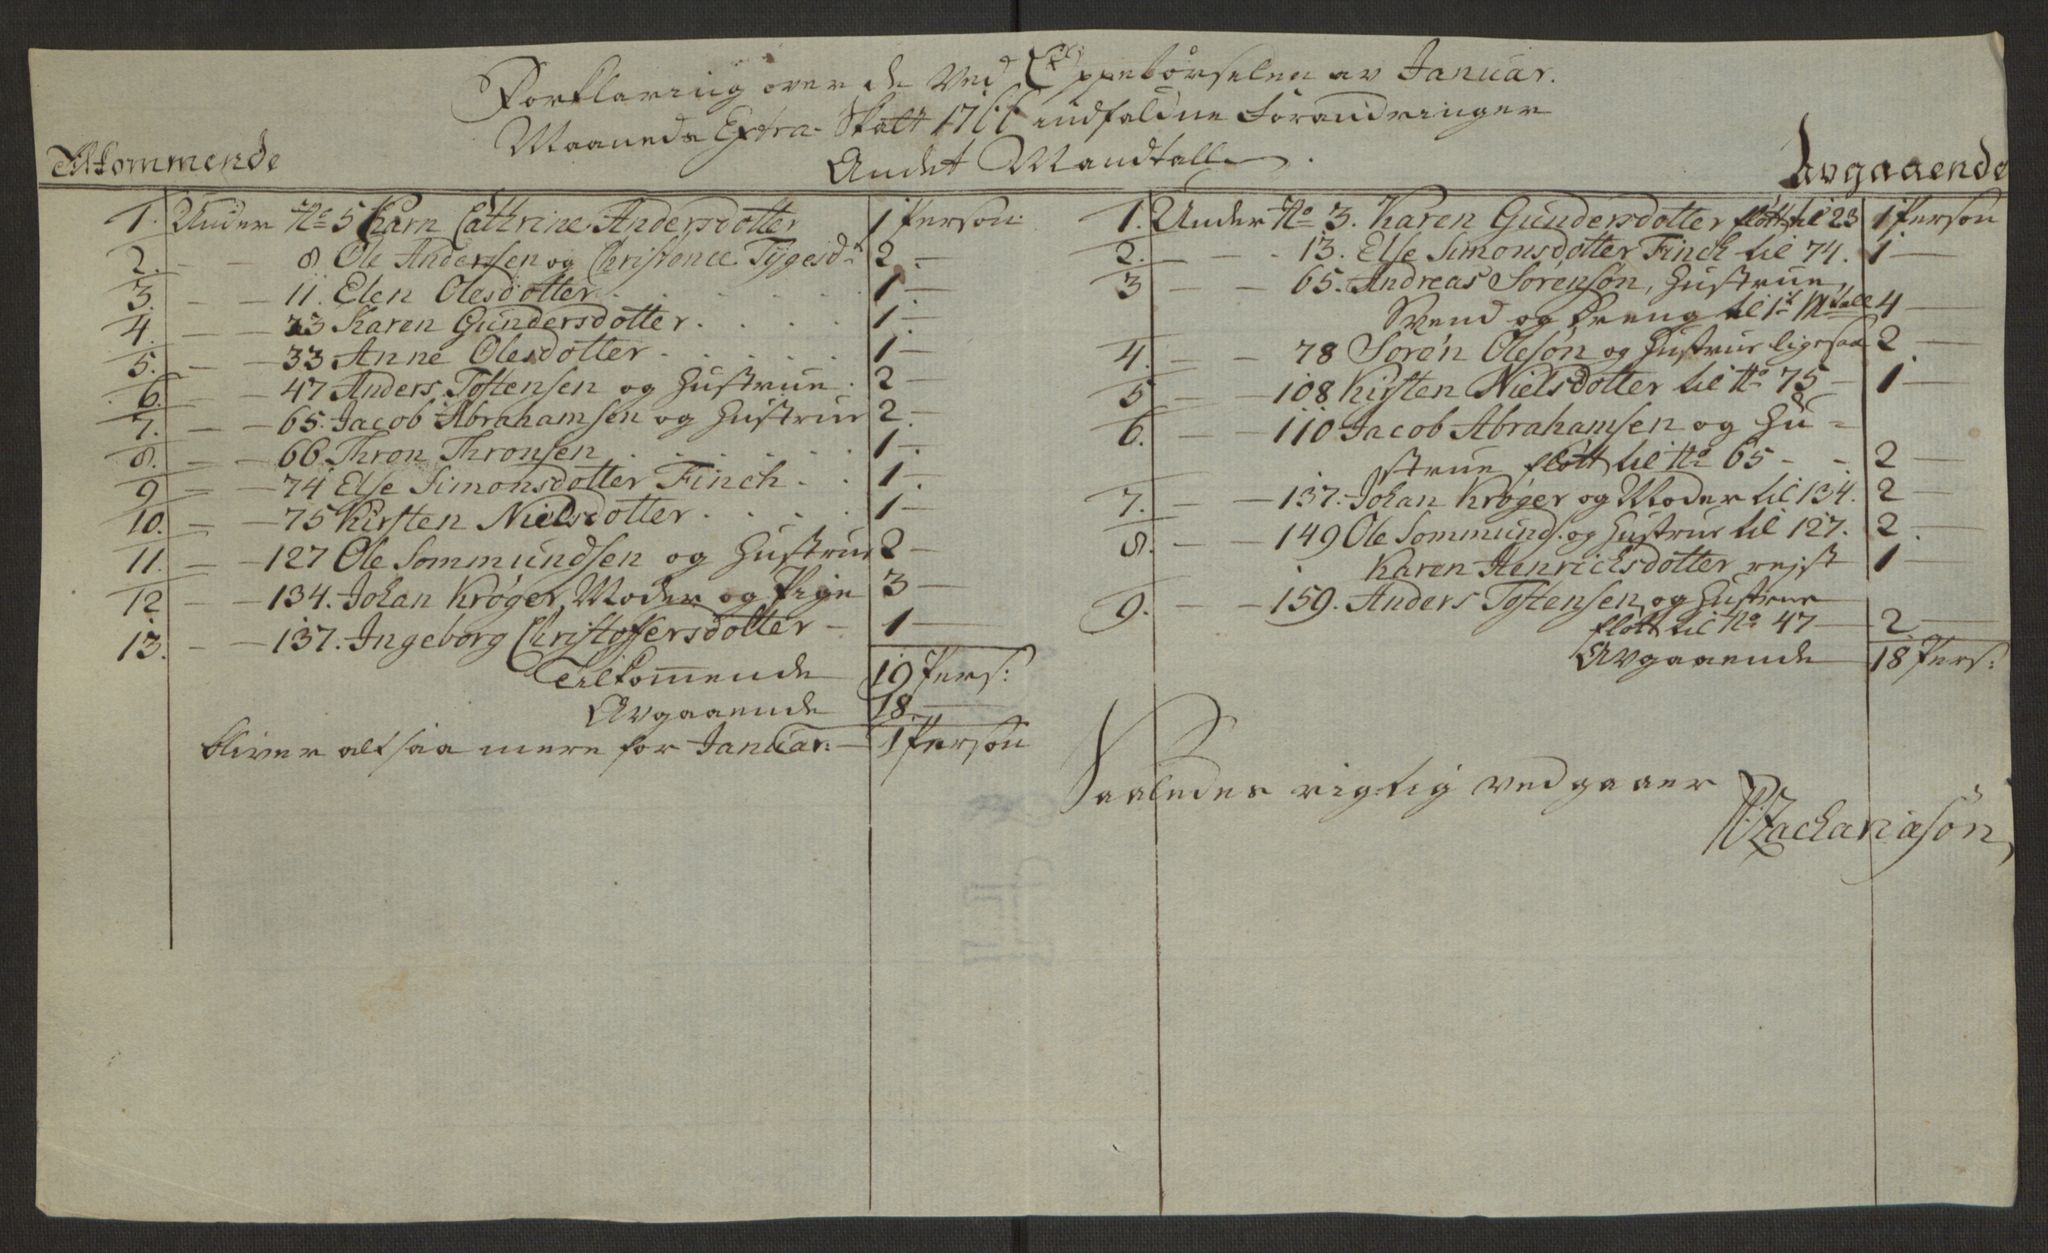 Forklaring over de Ved Oppebørselen av Januar.
Maaneds Extra-Skatt 1766 indfaldne Forandringer
Andet Mandtall.
Tilkommende
1. Under No 5 Karn Cathrine Andersdotter 1 Person:
2. — — 8 Ole Anderssen og Christence Tygesdr 2 —
3. — — 11. Elen Olesdotter 1 —
4. — — 23 Karen Gundersdotter 1 —
5. — — 33 Anne Olesdotter 1 —
6. — — 47 Anders Toftensen og Hustrue 2 —
7. — — 65. Jacob Abrahamsen og Hustrue 2 —
8. — — 66 Thron Thronsen 1 —
9 — — 74 Else Simonsdotter Finch 1 —
10. — — 75 Kirsten Nielsdotter 1 —
11. — — 127 Ole Sommundsen og Hustrue 2 —
12 — — 134. Johan Krøger, Moder og Pige 3 —
13. — — 137. Ingeborg Christoffersdotter — 1 —
Tilkommende 19 Pers:
Avgaaende 18 —
bliver altsaa mere for Januar: — 1 Person
Avgaaende
1. Under No 3. Karen Gundersdotter fløtt til 23 1 Person
2. — — 13. Else Simonsdotter Finch til 74. 1 —
3 — — 65. Andreas Sørensøn, Hustrue,
Svend og Dreng til 1t Mtall 4 —
4. — — 78 Sørén Olesøn og Hustrue ligesaa 2 —
5 — — 108 Kirsten Nielsdotter til No 75 — 1 —
6. — — 110 Jacob Abrahamsen og Hu=
strue fløtt til No 65 - - 2 —
7. — — 137. Johan Krøger og Moder til 134. 2 —
8. — — 149 Ole Sommunds. og Hustrue til 127. 2 —
Karen Henrichsdotter rejst 1 —
9. — — 159. Anders Toftensen og Hustrue
fløtt til No 47 — 2 —
Avgaaende 18 Pers:
Saaledes rigtig vedgaaer
Zachariasøn